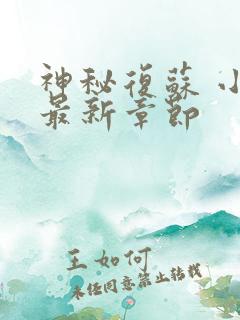 神秘復蘇 小
最新章節
王如何
未经同意禁止转载